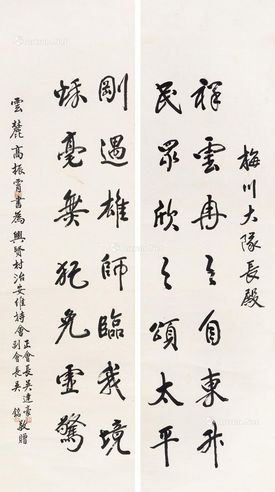 梅川大隊長殿
祥雲冉々自東升
民眾欣々頌太平
剛遇雄師臨我境
秋毫無犯免虛驚
雲麓高振霄書為興賢村治安維持會
正會長吳達
副會長吳銘
敬贈